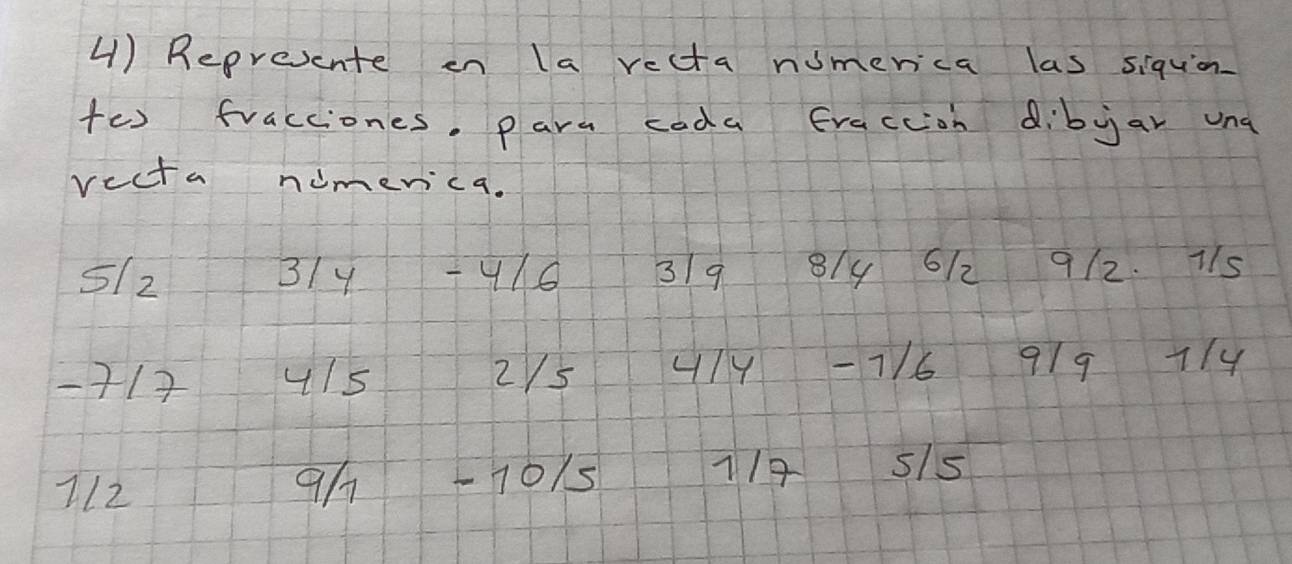 4) Represente en la recta númerica las siguien-
tes fracciones. para cada fracción dibujar una
recta númerica.
5/2 3/4 -4/6 3/9 8/4 6/2 9/2. 1/5
-7/7 4/5 2/5 4/4 -1/6 9/9 1/4
1/2 9/1 -10/5 1/7 5/5